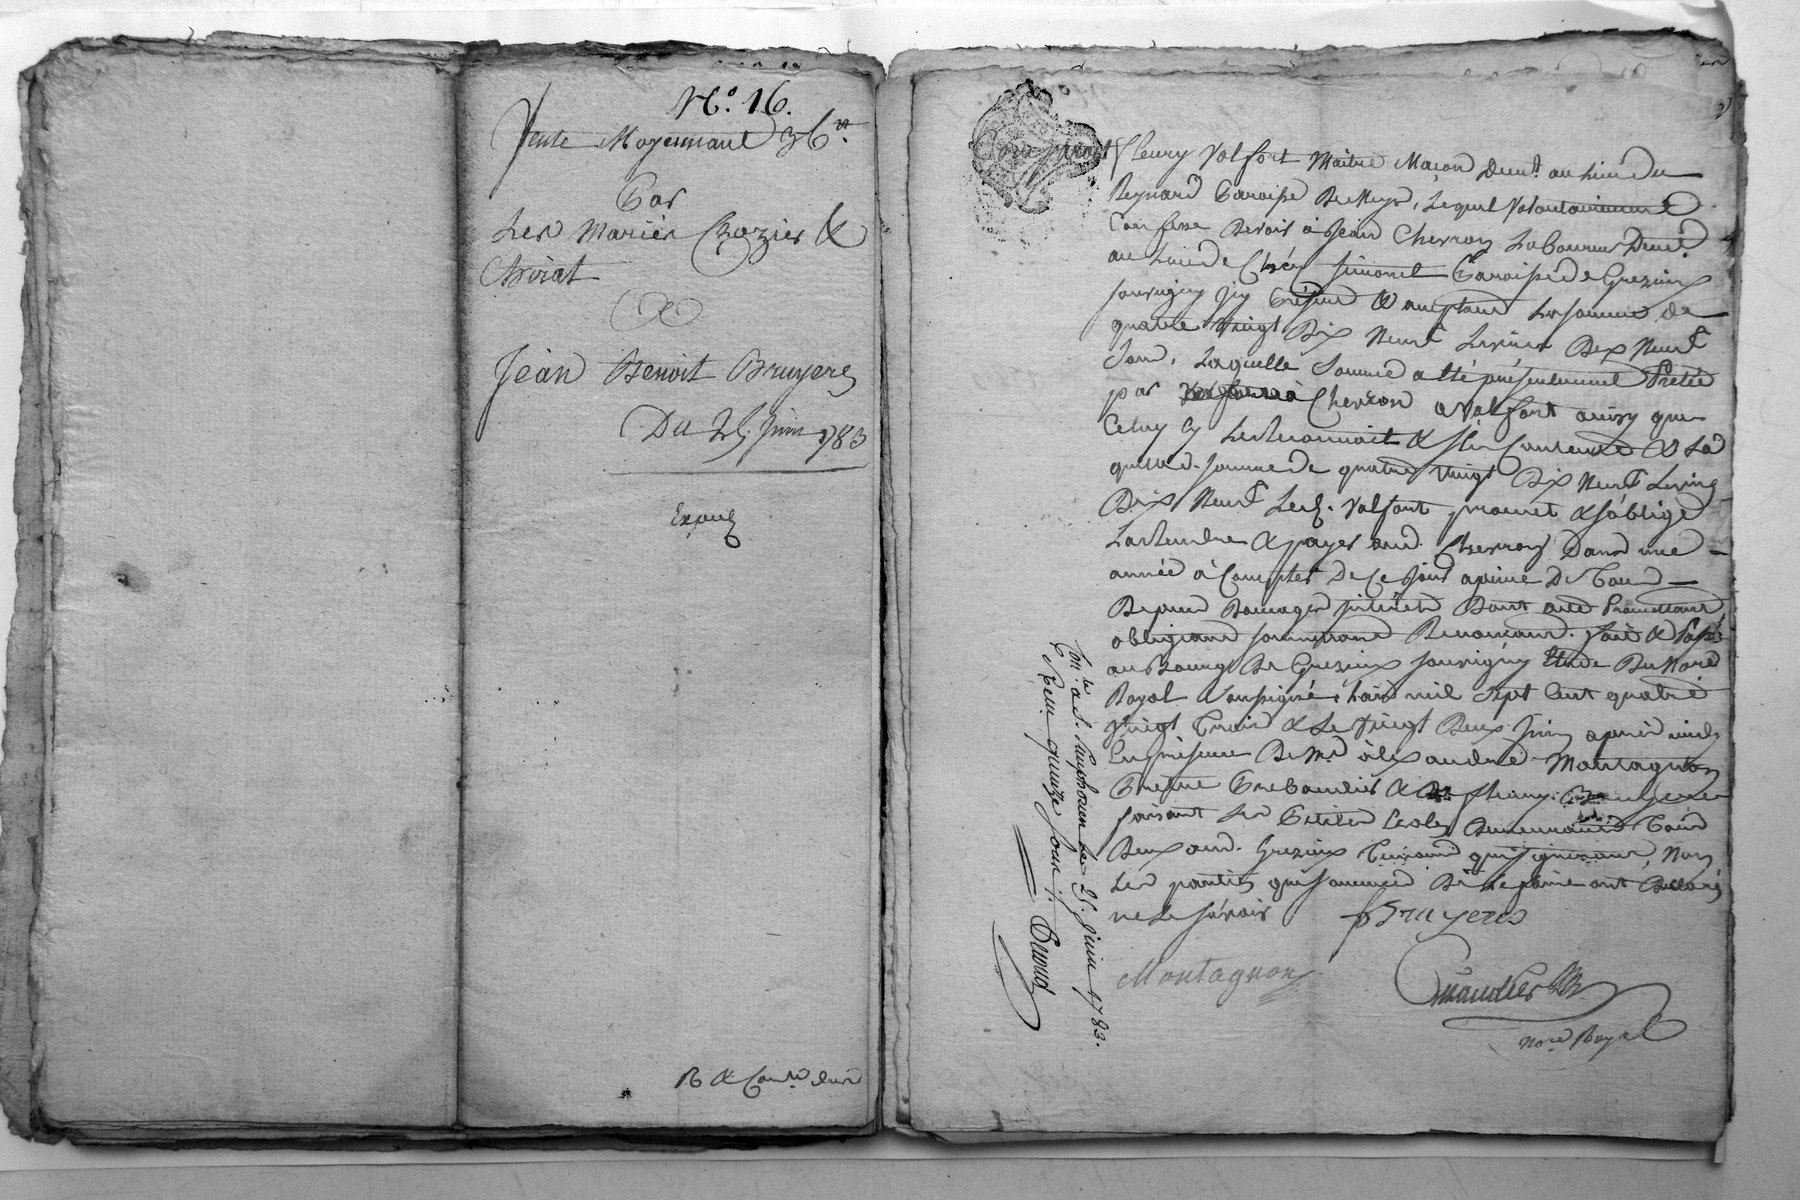 N.o 16.
Vente Moyennant 36 lt.
Par
Les Mariés Crozier &
Choirat
A
Jean Benoit Bruyere
Du 25 Juin 1783
Exped
R & Con.le
fleury Valfort Maitre Maçon Demt. au Lieu du
Reynard Paroisse De Meys, Lequel Volontairement
Confesse Devoir à Jean Cherron Laboureur Demt.
au Lieu de Chés Simonet Paroisse de Grezieux
Souvigny Icy Présent & acceptant La somme de
quatre Vingt Dix Neuf Livres Dix Neuf
Sous, Laquelle Somme a été présentement Prétée
par Cherron a Valfort ainsy que
Celuy Cy Le Reconnoit & S'en Contente &
quelle d. somme de quatre Vingt Dix Neuf Livres
Dix Neuf Led. Valfort promet & s'oblige
La Rendre & payer aud. Cherron Dans une
année à Compter De Ce Jour apeine De Tous
Depens Domages Interets Dont acte Promettant
obligeant soumettant Renonceant. fait & Passé
au Bourg De Grezieux Souvigny Etude Du No.re
Royal soussigné L'an mil Sept Cent quatre
Vingt Trois & Le Vingt Deux Juin apres midy
En presence De Mre. aléxandre Montagnon
Pretre Prebendier & De fleury Bruyeres
faisant Les Petites Ecoles Demeurants Tous
Deux aud. Grezieux Temoins qui signeront, Non
Les parties qui sommées De Le faire ont Declaré
ne Le sçavoir
fBruyeres
Montagnon
No.re Royal
Con.lé a S. Simphorien le 25. juin 1783.
Reçu quinze sous